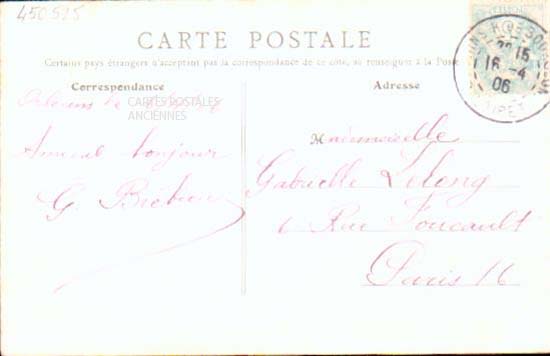 450525
CARTE POSTALE
Certains pays étrangers n'acceptent pas la correspondance de ce côté, se renseigner à la Poste
Correspondance
Adresse
Orléans le
CARTES POSTALES
ANCIENNES
Amical bonjour
G.
Mademoiselle
Gabrielle Lelong
6 Rue Foucault
Paris 16
15
16 -4
06
LOIRET